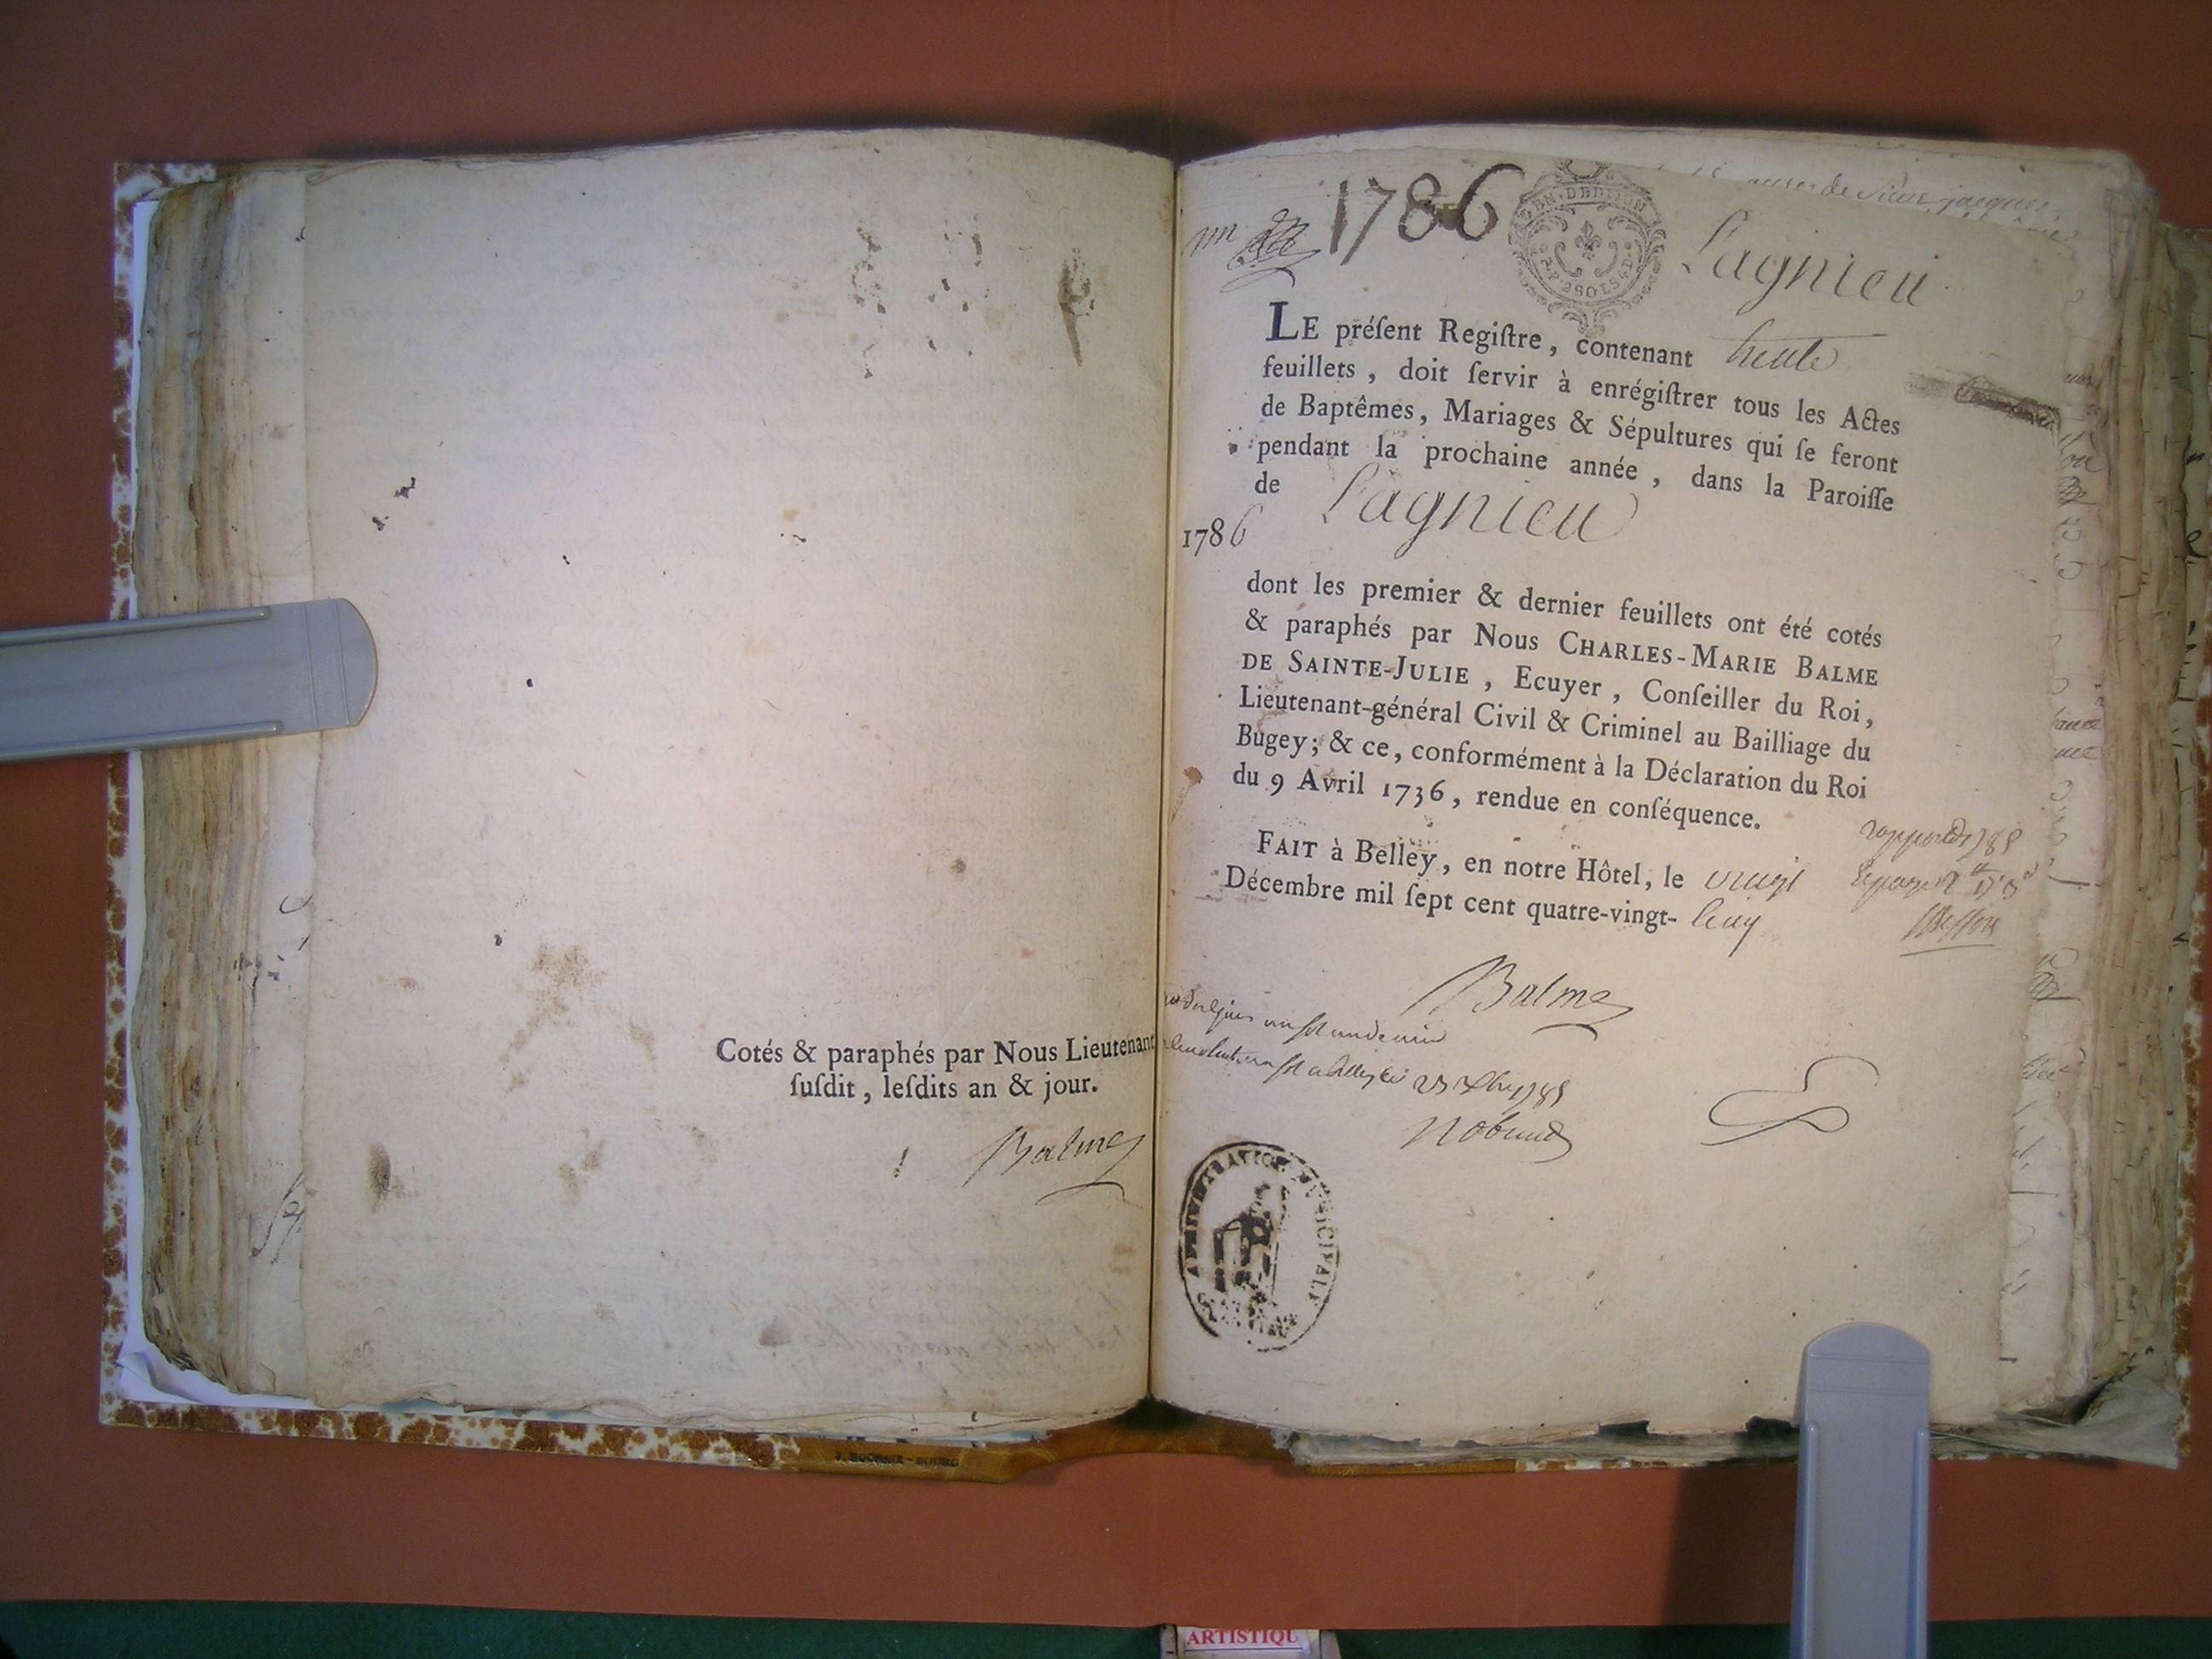 Cotés & paraphés par Nous Lieutenant
ſuſdit, leſdits an & jour.
Balme
1786
GEN. DE DIJON
Lagnieu
LE préſent Regiſtre, contenant trente
feuillets, doit ſervir à enrégiſtrer tous les Actes
de Baptêmes, Mariages & Sépultures qui ſe feront
pendant la prochaine année, dans la Paroiſſe
de Lagnieu
1786
dont les premier & dernier feuillets ont été cotés
& paraphés par Nous CHARLES-MARIE BALME
DE SAINTE-JULIE, Ecuyer, Conſeiller du Roi,
Lieutenant-général Civil & Criminel au Bailliage du
Bugey; & ce, conformément à la Déclaration du Roi
du 9 Avril 1736, rendue en conſéquence.
FAIT à Belley, en notre Hôtel, le vingt
Décembre mil ſept cent quatre-vingt- cinq
Balme
ADMINISTRATION MUNICIPALE
ARTISTIQU